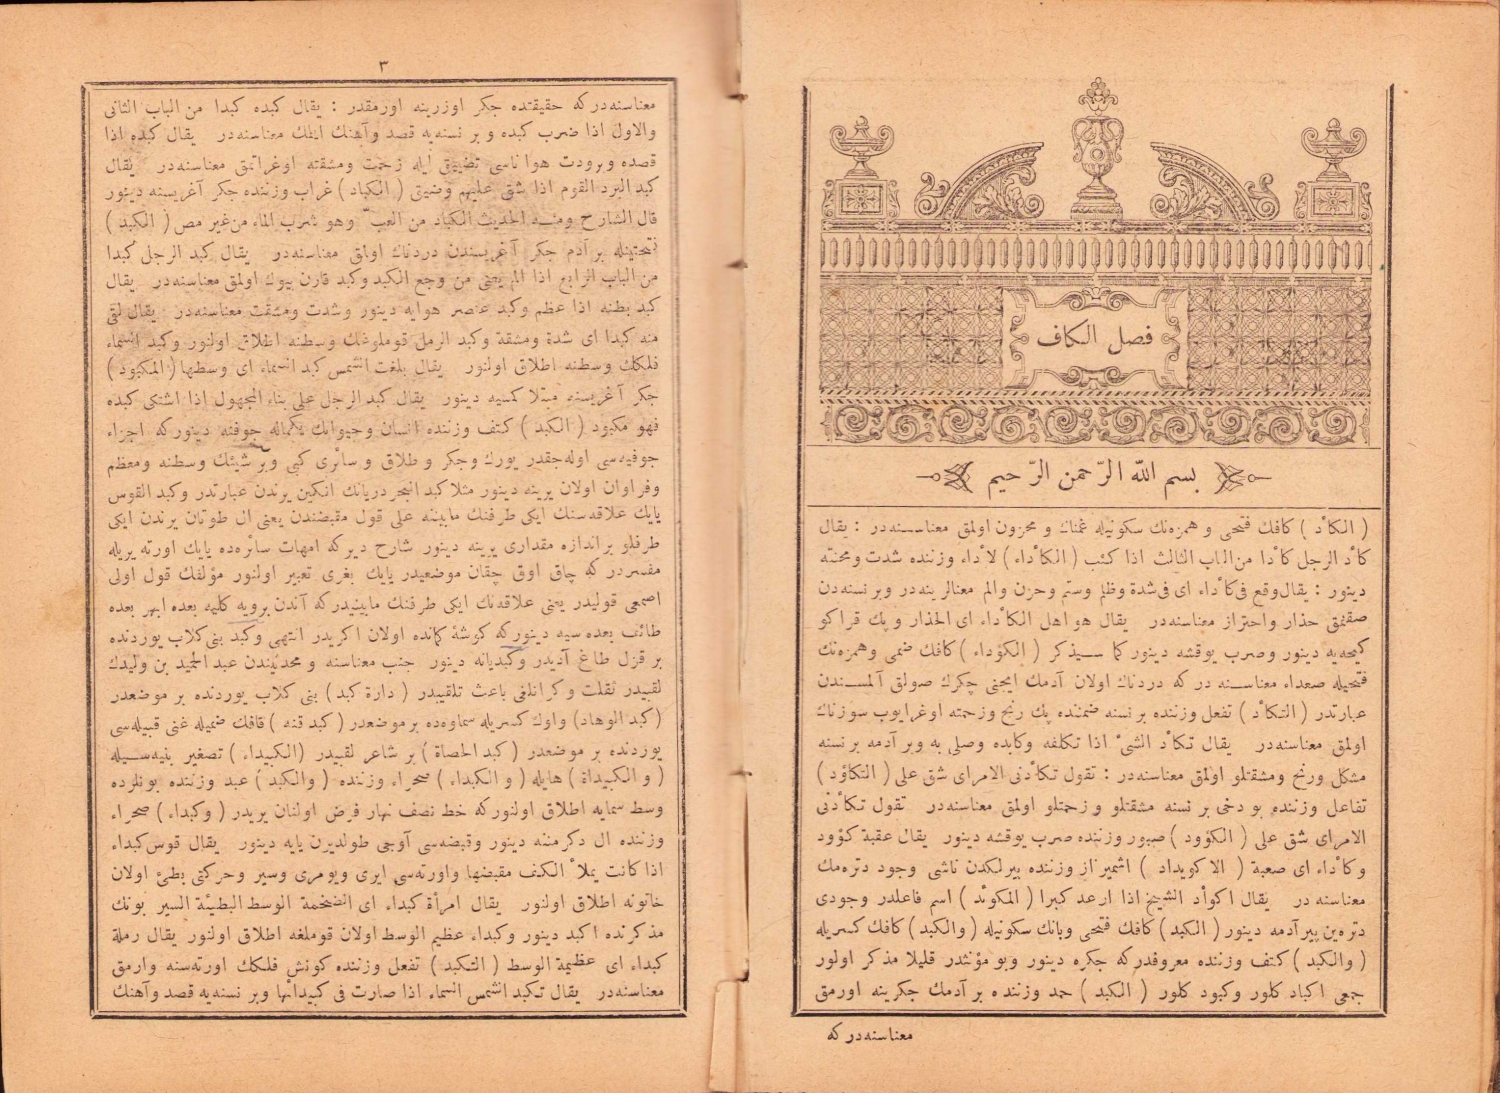 فصل الكاف
بسم الله الرّحمن الرّحيم
( الكأد ) كافك فتحى و همزه‌نك سكونيله غمناك و محزون اولمق معناسنه‌در : يقال
كأد الرجل كأدا من الباب الثالث اذا كئب ( الكأداء ) لأداء وزننده شدت ومحنته
دينور : يقال وقع فى كأداء اى فى شدة وظلم وستم وحزن والم معنالرينه‌در وبر نسنه‌دن
صقنمق حذار واحتراز معناسنه‌در يقال هو اهل الكأداء اى الحذار و پك قراكو
كيجه‌يه دينور وصرب يوقشه دينور كما سيذكر ( الكؤداء ) كافك ضمى وهمزه‌نك
فتحيله صعداء معناسنه در كه دردناك اولان آدمك ايچنى چكرك صولق آلمسندن
عبارتدر ( التكأد ) تفعل وزننده بر نسنه ضمننده پك رنج وزحمته اوغرايوب سوزناك
اولمق معناسنه‌در يقال تكأد الشئ اذا تكلفه وكابده وصلى به وبر آدمه بر نسنه
مشكل ورنج ومشقتلو اولمق معناسنه‌در : تقول تكأدنى الامر اى شق على ( التكاؤد )
تفاعل وزننده بو دخى بر نسنه مشقتلو و زحمتلو اولمق معناسنه‌در تقول تكأدنى
الامر اى شق على ( الكؤود ) صبور وزننده صرب يوقشه دينور يقال عقبة كؤود
وكأداء اى صعبة ( الاكويداد ) اشميراز وزننده پيرلكدن ناشى وجود دتره‌مك
معناسنه در يقال اكوأد الشيخ اذا ارعد كبرا ( المكوئد ) اسم فاعلدر وجودى
دتره‌ين پير آدمه دينور ( الكبد ) كافك فتحى وبانك سكونيله ( والكبد ) كافك كسريله
( والكبد ) كتف وزننده معروفدر كه جكره دينور وبو مؤنثدر قليلا مذكر اولور
جمعى اكباد كلور وكبود كلور ( الكبد ) حمد وزننده بر آدمك جكرينه اورمق
معناسنه‌در كه
٣
معناسنه‌در كه حقيقتده جكر اوزرينه اورمقدر : يقال كبده كبدا من الباب الثانى
والاول اذا ضرب كبده و بر نسنه‌يه قصد وآهنك ايلمك معناسنه‌در يقال كبده اذا
قصده وبرودت هوا ناسى تضييق ايله زحمت ومشقته اوغراتمق معناسنه‌در يقال
كبد البرد القوم اذا شق عليهم وضيق ( الكباد ) غراب وزننده جكر آغريسنه دينور
قال الشارح ومنه الحديث الكباد من العب وهو شرب الماء من غير مص ( الكبد )
فتحتينله بر آدم جكر آغريسندن دردناك اولمق معناسنه‌در يقال كبد الرجل كبدا
من الباب الرابع اذا الم يعنى من وجع الكبد وكبد قارن بيوك اولمق معناسنه‌در يقال
كبد بطنه اذا عظم وكبد عناصر هوايه دينور وشدت ومشقت معناسنه‌در يقال لقى
منه كبدا اى شدة ومشقة وكبد الرمل قوملوغك وسطنه اطلاق اولنور وكبد السماء
فلكك وسطنه اطلاق اولنور يقال بلغت الشمس كبد السماء اى وسطها ( المكبود )
جكر آغريسنه مبتلا كمسيه دينور يقال كبد الرجل على بناء المجهول اذا اشتكى كبده
فهو مكبود ( الكبد ) كتف وزننده انسان وحيوانك بكماله جوفنه دينور كه اجزاء
جوفيه‌سى اوله‌جقدر يورك وجكر و طلاق و سائرى كبى وبر شيئك وسطنه ومعظم
وفراوان اولان يرينه دينور مثلا كبد البحر دريانك انكين يرندن عبارتدر وكبد القوس
يايك علاقه‌سنك ايكى طرفنك مابيننه على قول مقبضندن يعنى ال طوتان يرندن ايكى
طرفلو بر اندازه مقدارى يرينه دينور شارح ديركه امهات سائره‌ده يايك اورته يريله
مفسردر كه چاق اوق چقان موضعيدر يايك بغرى تعبير اولنور مؤلفك قول اولى
اصمعى قوليدر يعنى علاقه‌نك ايكى طرفنك مابينيدر كه آندن برويه كليه بعده ابهر بعده
طائف بعده سيه دينور كه كوشهٔ كمانده اولان اكريدر انتهى وكبد بنى كلاب يوردنده
بر قزل طاغ آديدر وكبديانه دينور جنب معناسنه و محدثيندن عبد الحميد بن وليدك
لقبيدر ثقلت وكرانلغى باعث تلقيبدر ( دارة كبد ) بنى كلاب يوردنده بر موضعدر
( كبد الوهاد ) واوك كسريله سماوه‌ده بر موضعدر ( كبد قنه ) قافك ضميله غنى قبيله‌سى
يوردنده بر موضعدر ( كبد الحصاة ) بر شاعر لقبيدر ( الكبيداء ) تصغير بنيه‌سيله
( و الكبيداة ) هايله ( و الكبداء ) صحراء وزننده ( والكبد ) عبد وزننده بونلرده
وسط سمايه اطلاق اولنور كه خط نصف نهار فرض اولنان يريدر ( وكبداء ) صحراء
وزننده ال دكرمننه دينور وقبضه‌سى آوجى طولديرن يايه دينور يقال قوس كبداء
اذا كانت يملأ الكف مقبضها واورته‌سى ايرى ويومرى وسير وحركتى بطئ اولان
خاتونه اطلاق اولنور يقال امرأة كبداء اى الضخمة الوسط البطيئة السير بونك
مذكرنده اكبد دينور وكبداء عظيم الوسط اولان قوملغه اطلاق اولنور يقال رملة
كبداء اى عظيمة الوسط ( التكبد ) تفعل وزننده كونش فلكك اورته‌سنه وارمق
معناسنه‌در يقال تكبد الشمس السماء اذا صارت فى كبيدائها وبر نسنه‌يه قصد وآهنك